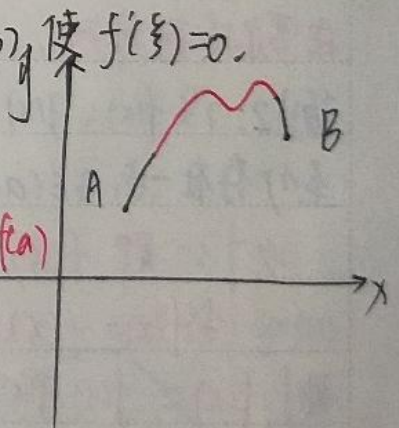 使 f'(ξ)=0.
A
B
f(a)
x